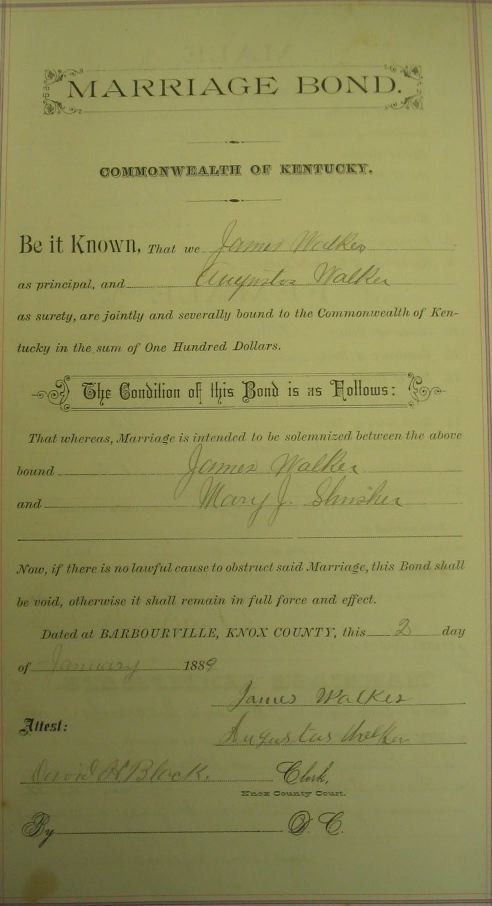 MARRIAGE BOND.
COMMONWEALTH OF KENTUCKY.
Be it Known, That we James Walker
as principal, and Augustus Walker
as surety, are jointly and severally bound to the Commonwealth of Ken-
tucky in the sum of One Hundred Dollars.
The Condition of this Bond is as Follows:
That whereas, Marriage is intended to be solemnized between the above
bound James Walker
and Mary J.
Now, if there is no lawful cause to obstruct said Marriage, this Bond shall
be void, otherwise it shall remain in full force and effect.
Dated at BARBOURVILLE, KNOX COUNTY, this 2 day
of January 1889
James Walker
Attest:
Augustus Walker
David H Black. Clerk,
Knox County Court.
By D. C.